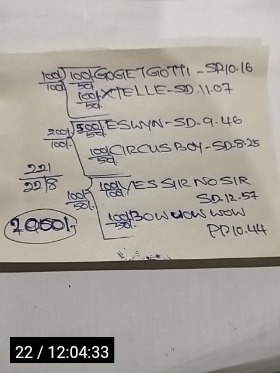 100/100 100/50 GOGETGOTTI - SD.10.16
100/50 XTELLE - SD.11.07
200/100 ESWYN - SD.9.46
100/50 CIRCUS BOY - SD.8.25
221
2218
100/50 100/ YES SIR NO SIR
SD.12.57
100/50 BOW WOW WOW
PP.10.44
22 / 12:04:33